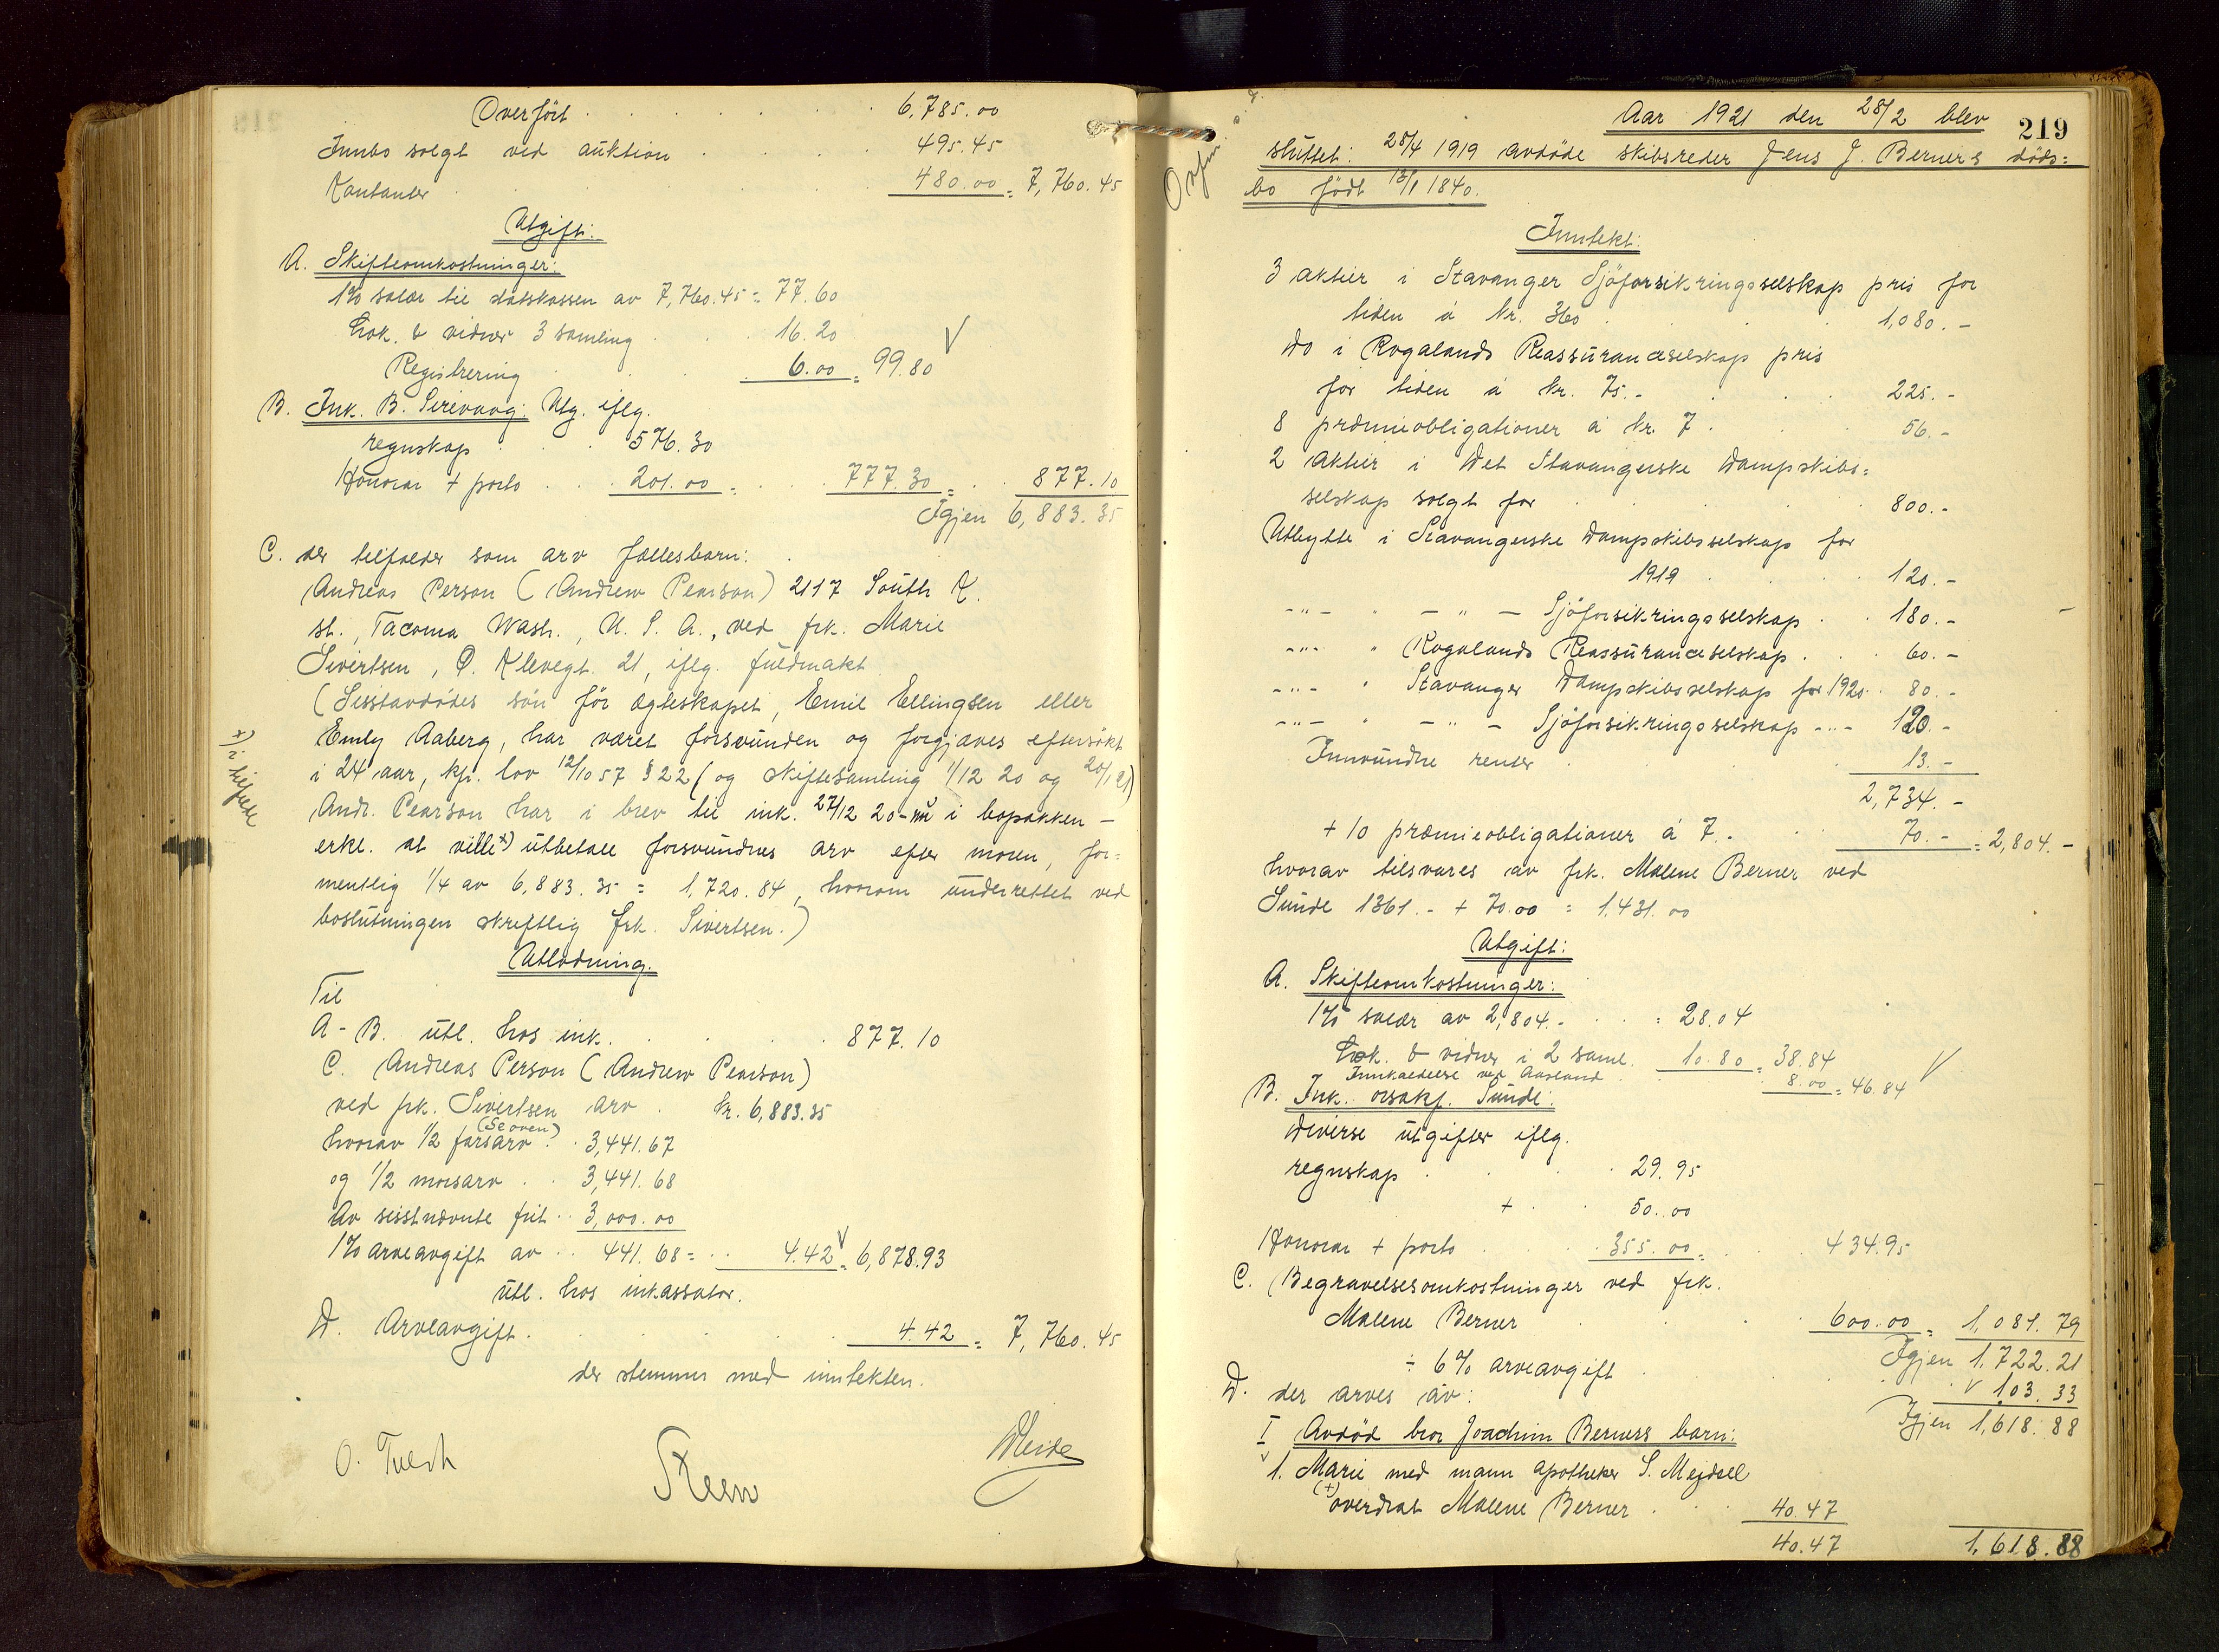 Overført . . . . . . 6,785.00
Innbo solgt ved auktion . . . . 495.45
Kontanter . . . . 480.00 = 7,760.45
Utgift:
A. Skifteomkostninger:
1% salær til statskassen av 7,760.45 = 77.60
Prok. & vidner 3 samling . . 16.20
Registrering . . . 6.00 = 99.80 V
B. Ink. B. Sirevaag: Utg. iflg.
regnskap . . . 576.30
Honorar + porto . . . 201.00 = . . 777.30 = . . 877.10
Igjen 6,883.35
C. der tilfalder som arv fællesbarn:
Andreas Person (Andrew Pearson) 2117 South K.
st., Tacoma Wash., U.S.A., ved frk. Marie
Sivertsen, P. Klevegt. 21, iflg. fuldmakt
(Sisstavdødes søn før ægteskapet, Emil Ellingsen eller
Emly Aaberg, har været forsvunden og forgjæves eftersøkt
i 24 aar, kfr. lov 12/10 57 § 22 (og skiftesamling 1/12 20 og 20/1 21)
+) i tilfælde
Andr. Pearson har i brev til ink. 27/12 20 - nu i bopakken -
erkl. at ville +) utbetale forsvundnes arv efter moren, for=
mentlig 1/4 av 6,883.35 = 1,720.84, hvorom underrettet ved
boslutningen skriftlig frk. Sivertsen.)
Utlodning.
Til
A - B. utl. hos ink. . . . . 877.10
C. Andreas Person (Andrew Pearson)
ved frk. Sivertsen arv . Kr. 6,883.35
(Se oven)
hvorav 1/2 farsarv . . 3,441.67
og 1/2 morsarv . . 3,441.68
Av sisstnævnte frit . . 3,000.00
1% arveavgift av . . 441.68 = . . 4.42 V = 6,878.93
utl. hos inkassator.
D. Arveavgift . . . . . 4.42 = 7,760.45
der stemmer med inntekten.
O. Tvedt Steen Heide
219
Aar 1921 den 28/2 blev
sluttet: 28/4 1919 avdøde skibsreder Jens J. Berners døds=
bo født 13/1 1840.
Inntekt:
3 aktier i Stavanger Sjøforsikringsselskap pris for
tiden à Kr. 360 . . . 1,080.-
Do i Rogalands Reassuranceselskap pris
for tiden à Kr. 75.- . . . 225.-
8 præmieobligationer à Kr. 7 . . 56.-
2 aktier i Det Stavangerske Dampskibs=
selskap solgt for . . . 800.-
Utbytte i Stavangerske Dampskibsselskap for
1919 . . . 120.-
-"- " - " - Sjøforsikringsselskap . . 180.-
-"- " Rogalands Reassuranceselskap . . 60.-
-"- " Stavanger Dampskibsselskap for 1920 . . 80.-
-"- " - " - Sjøforsikringsselskap -"- 120.-
Innvundne renter . . . 13.-
2,734.-
+ 10 præmieobligationer à 7.- . . 70.- = 2,804.-
hvorav tilsvares av frk. Malene Berner ved
Sunde 1361.- + 70.00 = 1,431.00
Utgift:
A. Skifteomkostninger:
1% salær av 2,804.- . . = 28.04
Prok. & vidner i 2 saml. 10.80 = 38.84
Innkaldelse ved Aarland . . 8.00 = 46.84 V
B. Ink. orsakf. Sunde:
Diverse utgifter iflg.
regnskap . . . 29.95
+ . . 50.00
Honorar + porto . . . 355.00 = . . 434.95
C. Begravelsesomkostninger ved frk.
Malene Berner . . . 600.00 = 1,081.79
Igjen 1,722.21
÷ 6% arveavgift . . . V 103.33
D. der arves av: Igjen 1,618.88
I Avdød bror Joachim Berners barn:
V 1. Marie med mann apotheker S. Mejdsell
(+)
overdrat Malene Berner . . 40.47
40.47 1,618.88